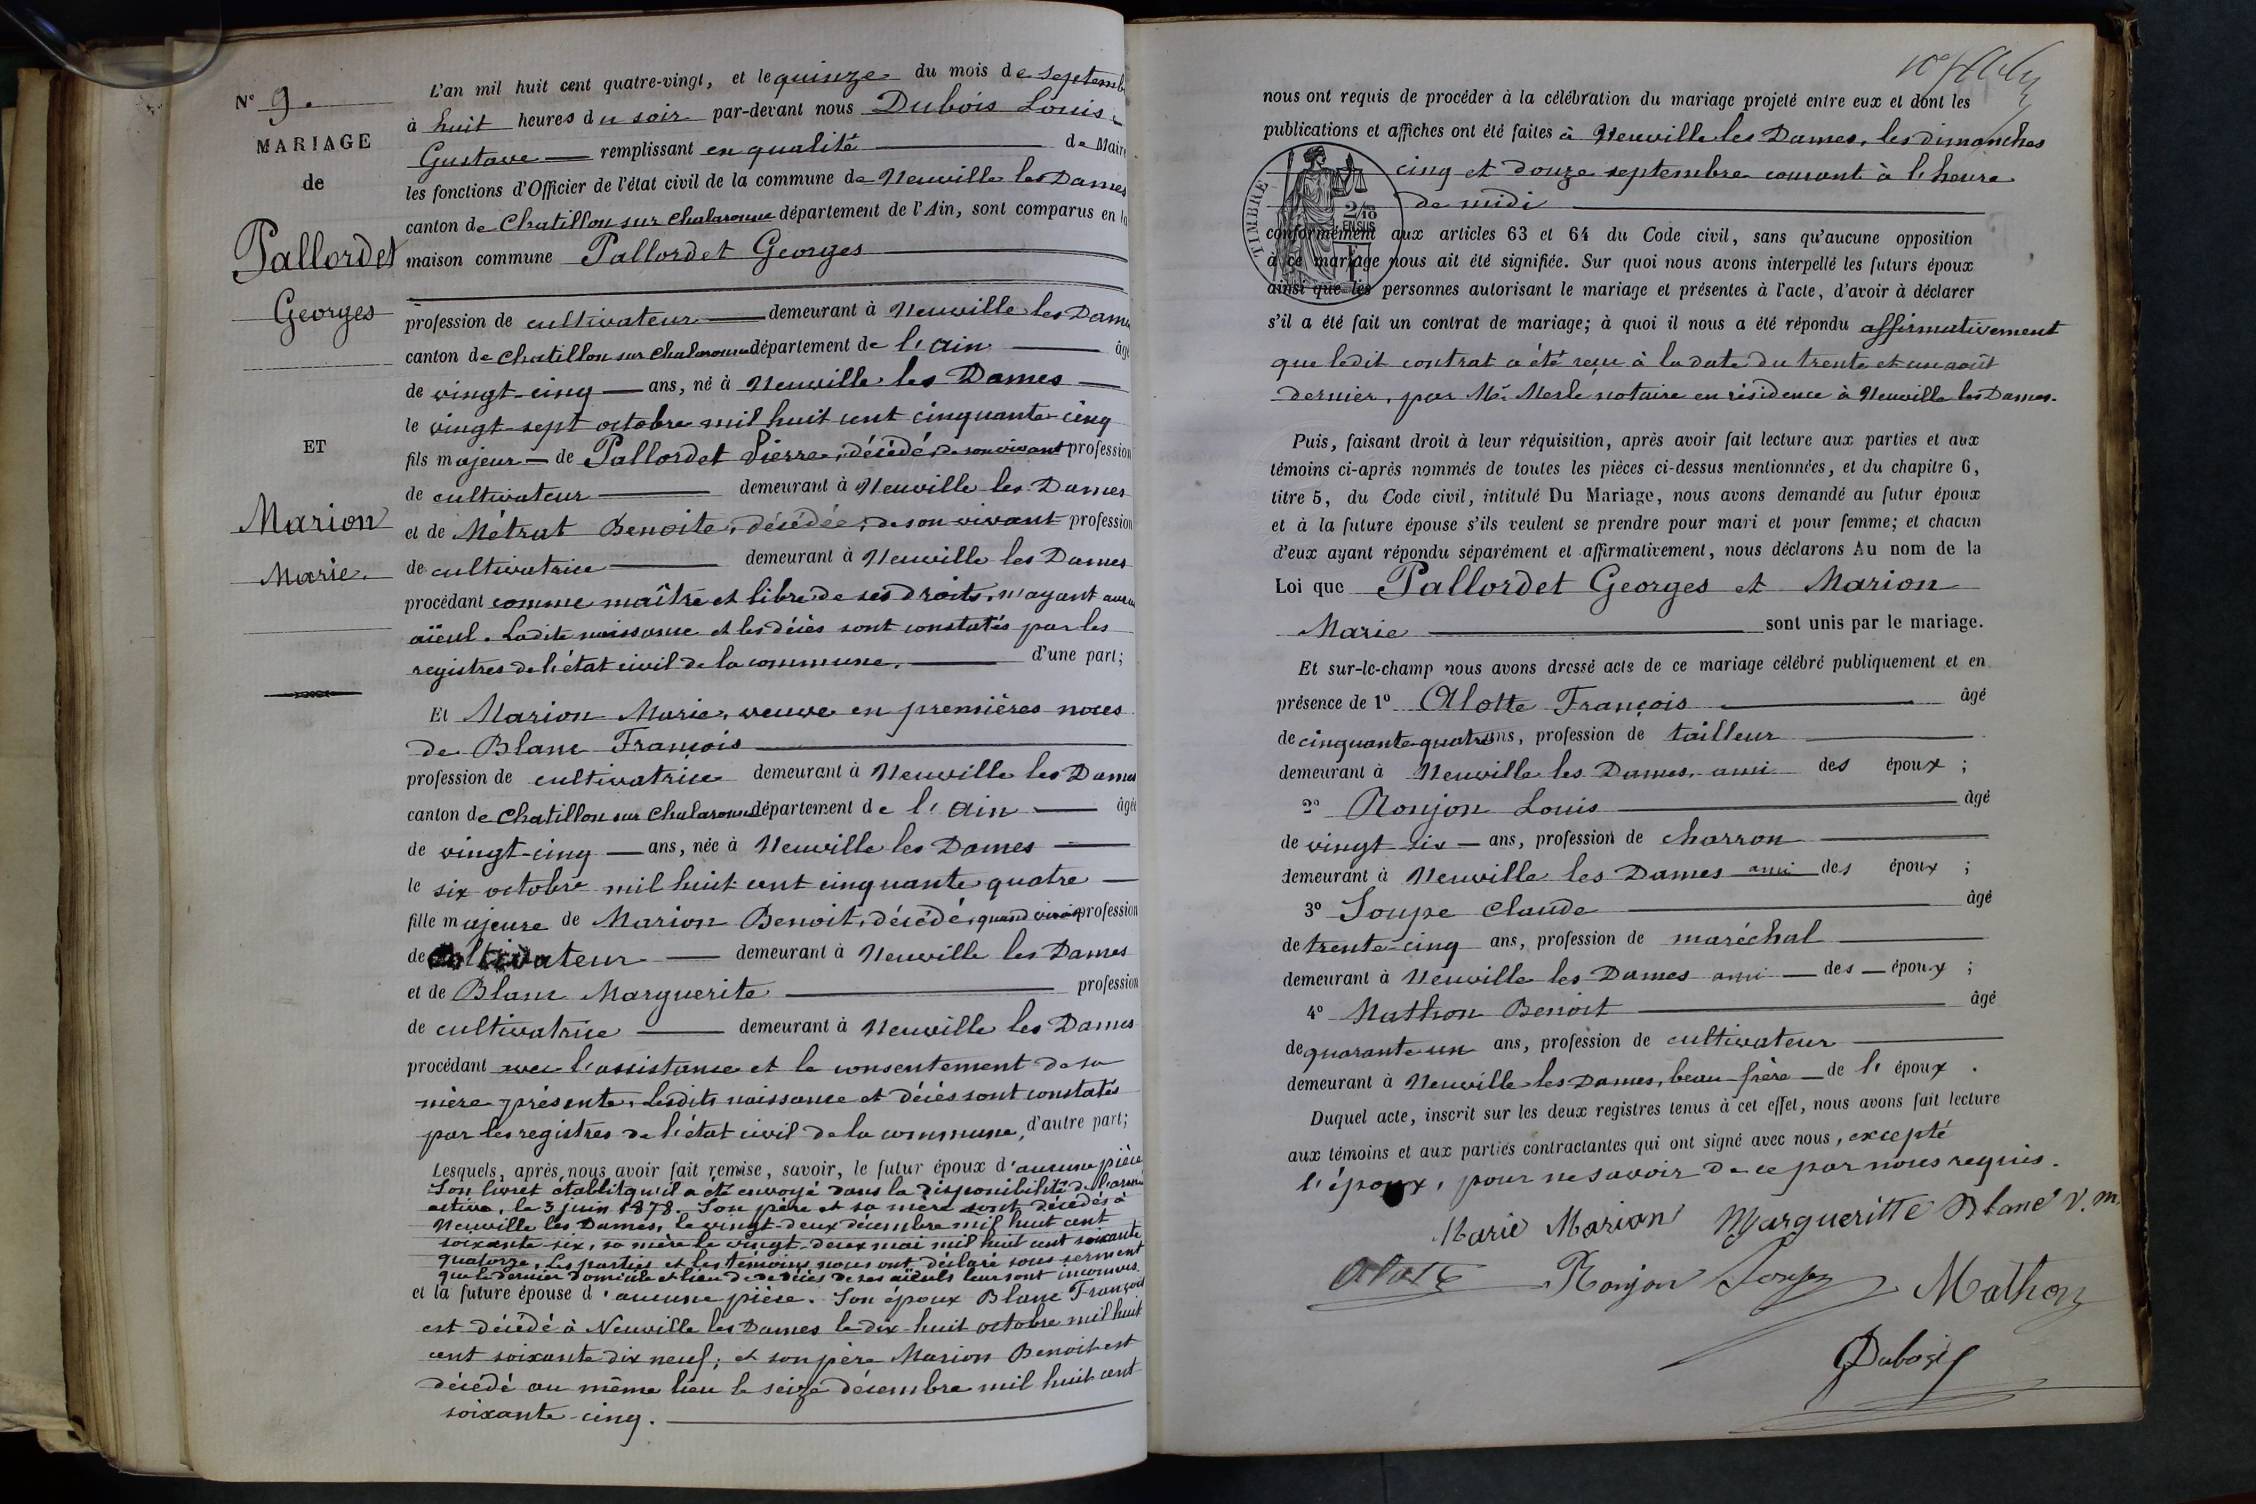 N° 9.
MARIAGE
de
Pallordet
Georges
ET
Marion
Marie.
L'an mil huit cent quatre-vingt, et le quinze du mois de septemb
à huit heures du soir par-devant nous Dubois Louis
Gustave remplissant en qualité de Maire
les fonctions d'Officier de l'état civil de la commune de Neuville les Dames
canton de Chatillon sur Chalaronne département de l'Ain, sont comparus en la
maison commune Pallordet Georges
profession de cultivateur demeurant à Neuville les Dames
canton de Chatillon sur Chalaronne département de l'Ain âgé
de vingt-cinq ans, né à Neuville les Dames
le vingt-sept octobre mil huit cent cinquante-cinq
fils majeur de Pallordet Pierre, décédé, de son vivant profession
de cultivateur demeurant à Neuville les Dames
et de Métrat Benoite, décédée, de son vivant profession
de cultivatrice demeurant à Neuville les Dames
procédant comme maître et libre de ses droits, n'ayant aucun
aïeul. Ladite naissance et les décès sont constatés par les
registres de l'état civil de la commune. d'une part;
Et Marion Marie, veuve en premières noces
de Blanc François
profession de cultivatrice demeurant à Neuville les Dames
canton de Chatillon sur Chalaronne département de l'Ain âgée
de vingt-cinq ans, née à Neuville les Dames
le six octobre mil huit cent cinquante quatre
fille majeure de Marion Benoit, décédé, quand vivait profession
de cultivateur demeurant à Neuville les Dames
et de Blanc Marguerite profession
de cultivatrice demeurant à Neuville les Dames
procédant avec l'assistance et le consentement de sa
mère présente. Lesdits naissance et décès sont constatés
par les registres de l'état civil de la commune, d'autre part;
Lesquels, après nous avoir fait remise, savoir, le futur époux d'aucune pièce
Son livret établit qu'il a été envoyé dans la disponibilité de l'armée
active, le 3 juin 1878. Son père et sa mère sont décédés à
Neuville les Dames, le vingt-deux décembre mil huit cent
soixante-six, sa mère le vingt-deux mai mil huit cent soixante
quatorze. Les parties et les témoins nous ont déclaré sous serment
que le dernier domicile et lieu de décès de ses aïeuls leur sont inconnus.
et la future épouse d'aucune pièce. Son époux Blanc François
est décédé à Neuville les Dames le dix-huit octobre mil huit
cent soixante dix neuf; et son père Marion Benoit est
décédé au même lieu le seize décembre mil huit cent
soixante-cinq.
nous ont requis de procéder à la célébration du mariage projeté entre eux et dont les
publications et affiches ont été faites à Neuville les Dames, les dimanches
cinq et douze septembre courant à l'heure
de midi
TIMBRE
2/10
EN SUS
conformément aux articles 63 et 64 du Code civil, sans qu'aucune opposition
à ce mariage nous ait été signifiée. Sur quoi nous avons interpellé les futurs époux
ainsi que les personnes autorisant le mariage et présentes à l'acte, d'avoir à déclarer
s'il a été fait un contrat de mariage; à quoi il nous a été répondu affirmativement
que ledit contrat a été reçu à la date du trente et un août
dernier, par Me Merle notaire en résidence à Neuville les Dames.
Puis, faisant droit à leur réquisition, après avoir fait lecture aux parties et aux
témoins ci-après nommés de toutes les pièces ci-dessus mentionnées, et du chapitre 6,
titre 5, du Code civil, intitulé Du Mariage, nous avons demandé au futur époux
et à la future épouse s'ils veulent se prendre pour mari et pour femme; et chacun
d'eux ayant répondu séparément et affirmativement, nous déclarons Au nom de la
Loi que Pallordet Georges et Marion
Marie sont unis par le mariage.
Et sur-le-champ nous avons dressé acte de ce mariage célébré publiquement et en
présence de 1° Alotte François âgé
de cinquante-quatre ans, profession de tailleur
demeurant à Neuville les Dames, ami des époux ;
2° Ronjon Louis âgé
de vingt six ans, profession de charron
demeurant à Neuville les Dames ami des époux ;
3° Soupe Claude âgé
de trente-cinq ans, profession de maréchal
demeurant à Neuville les Dames ami des époux ;
4° Mathon Benoit âgé
de quarante-un ans, profession de cultivateur
demeurant à Neuville les Dames, beau-frère de l'époux .
Duquel acte, inscrit sur les deux registres tenus à cet effet, nous avons fait lecture
aux témoins et aux parties contractantes qui ont signé avec nous, excepté
l'époux, pour ne savoir de ce par nous requis.
Marie Marion Margueritte Blanc V. M.
Alotte Ronjon Soupe Mathon
Dubois